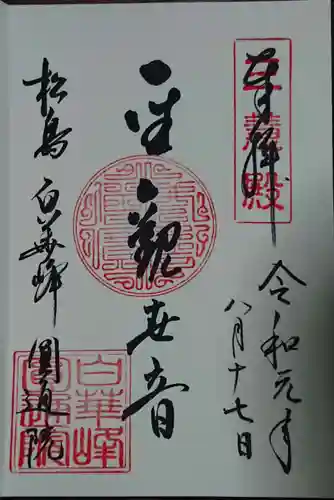 奉拝
三慧殿
令和元年
八月十七日
聖観世音
松島 白華峰 圓通院
白華峰